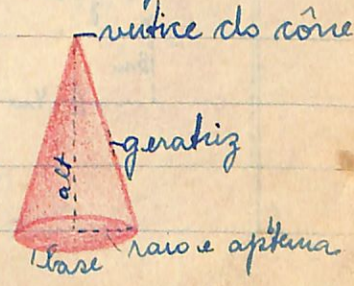 vértice do cône
geratriz
alt
base raio e apótema